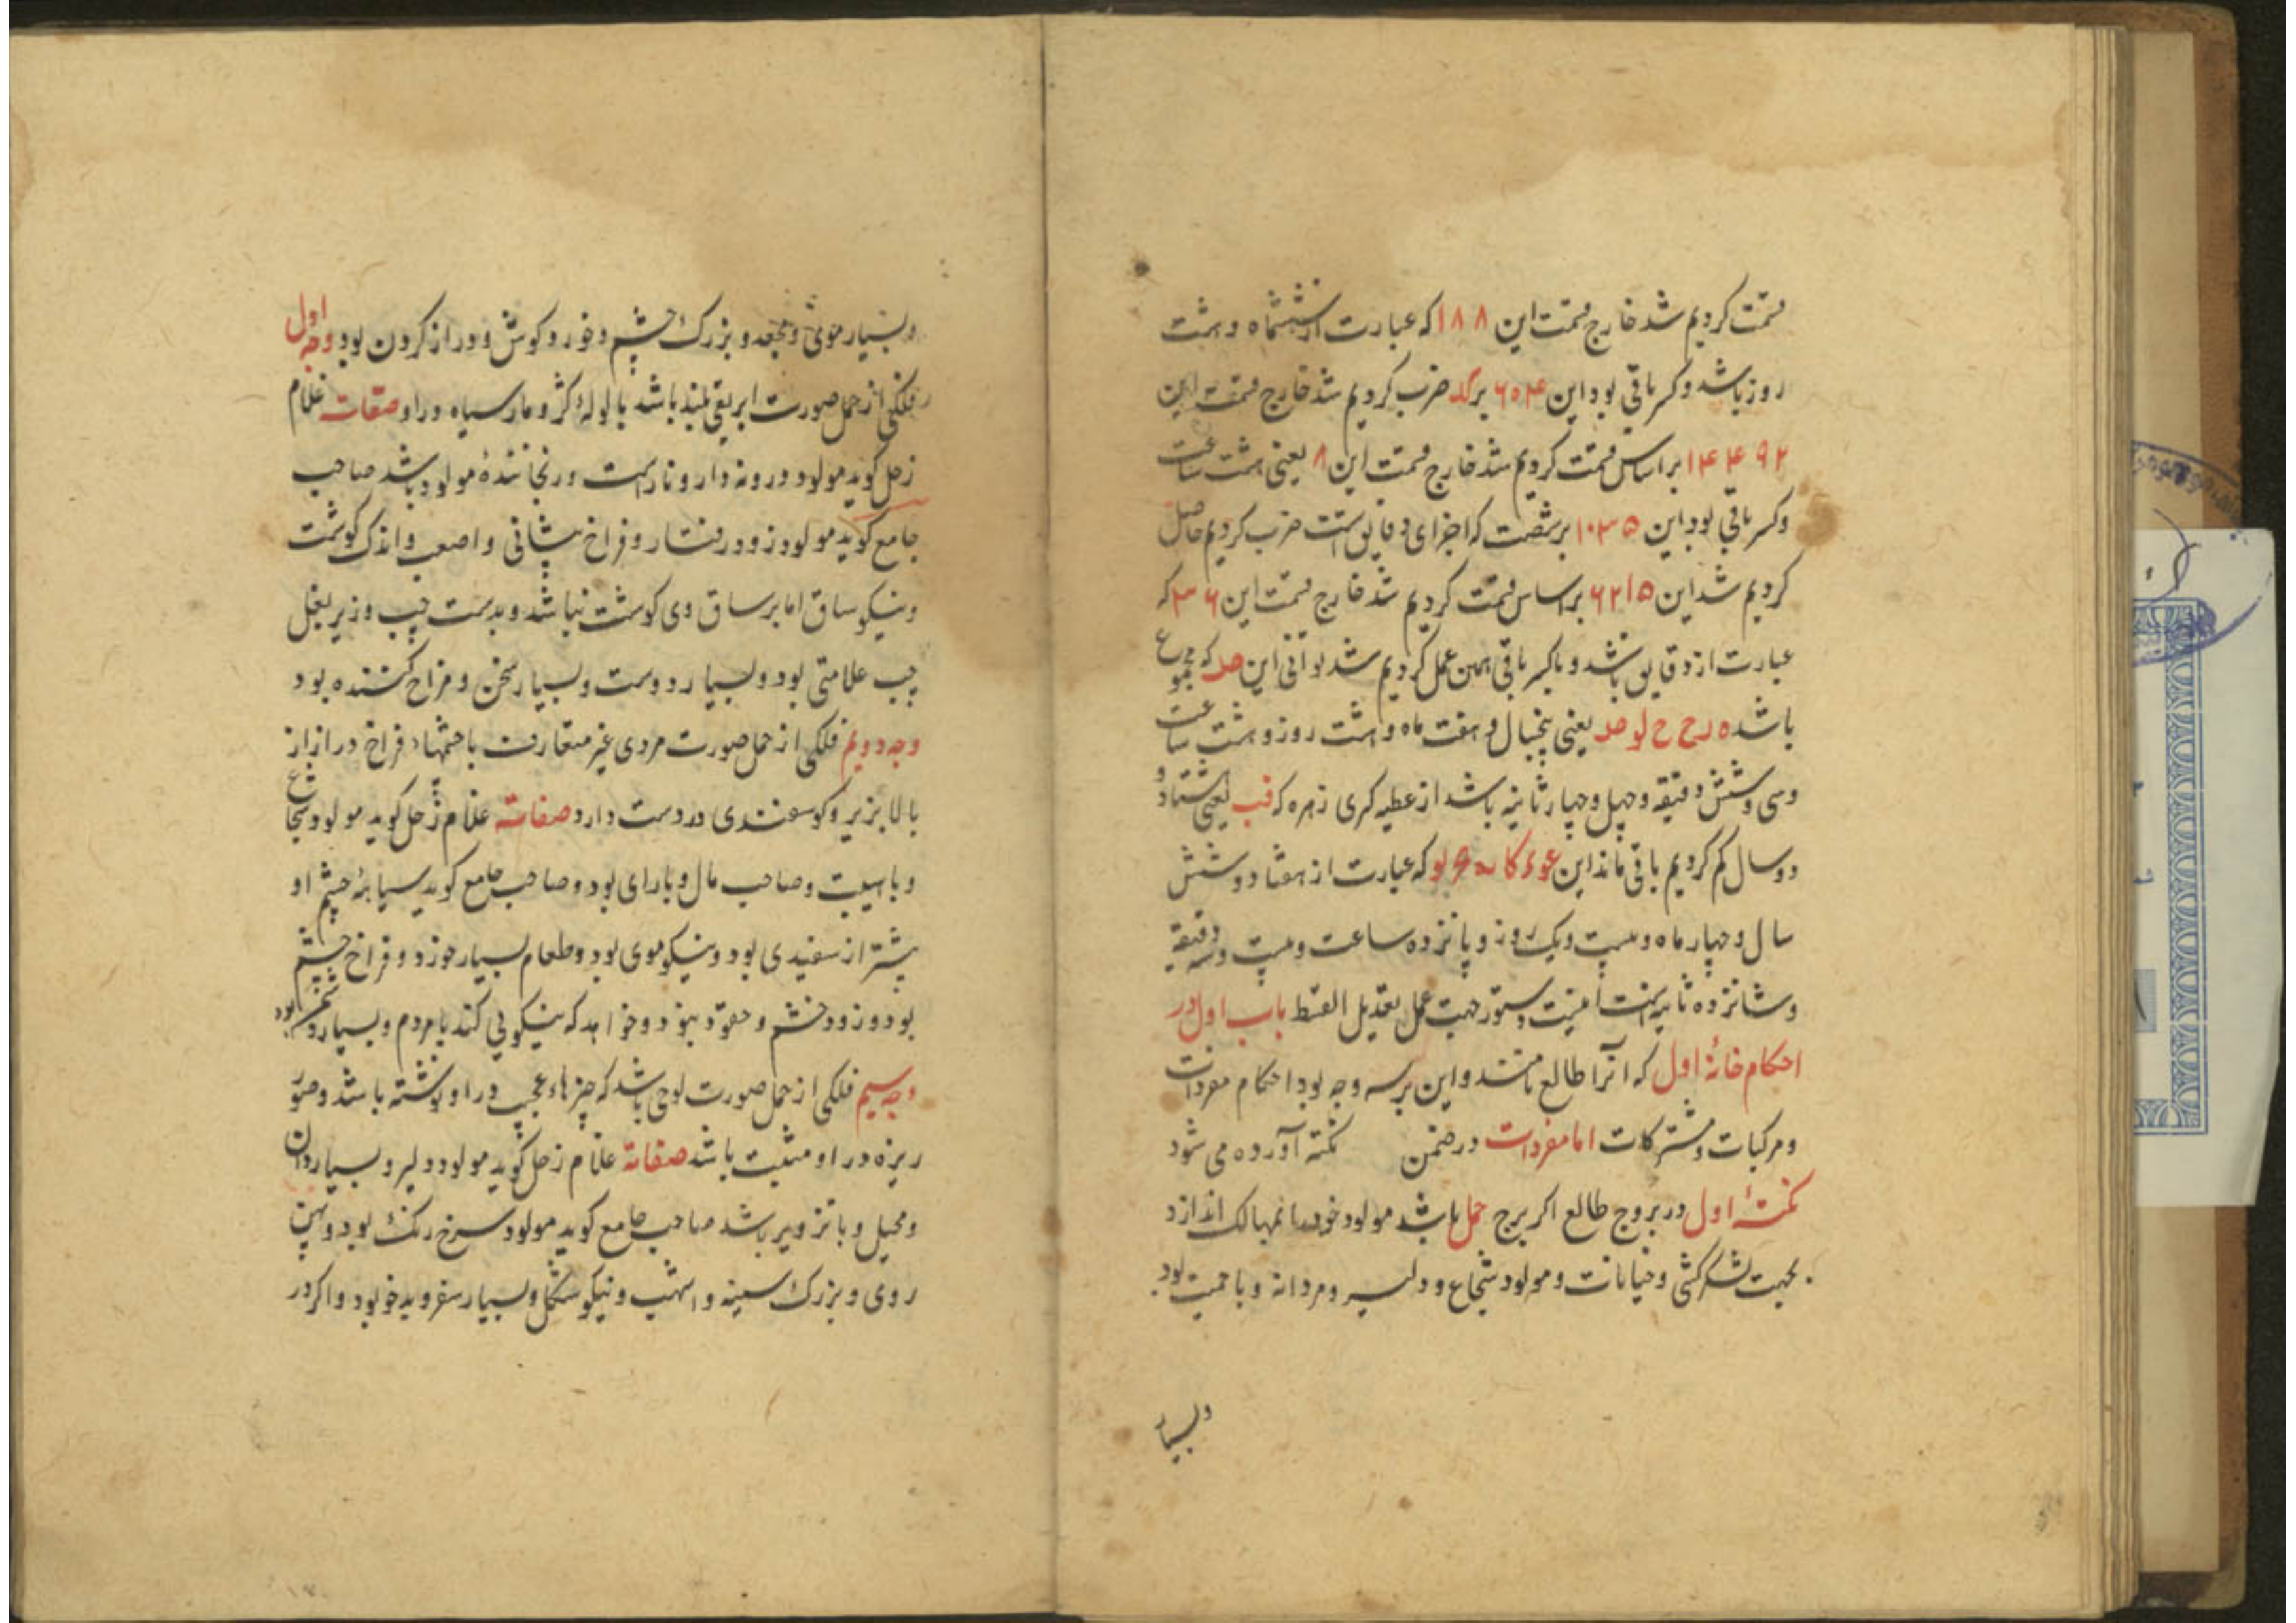 قسمت کردیم شد خارج قسمت این ۱۸۸ که عبارت از ششماه و هشت
روز باشد و کسر باقی بود این ۶۰۴ بر کد ضرب کردیم شد خارج قسمت این
۱۴۴۹۲ بر اساس قسمت کردیم شد خارج قسمت این ۸ یعنی هشت ساعت
و کسر باقی بود این ۱۰۳۵ بر شصت که اجزای دقایق است ضرب کردیم حاصل
کردیم شد این ۶۲۱۵ بر اساس قسمت کردیم شد خارج قسمت این ۳۶ که
عبارت از دقایق باشد و با کسر باقی همین عمل کردیم شد ثوانی این مد که مجموع
باشد ه ز ح ح لو مد یعنی پنجسال و هفت ماه و هشت روز و هشت ساعت
و سی و شش دقیقه و چهل و چهار ثانیه باشد از عطیه کبری زهره که فب یعنی هشتاد و
دو سال کم کردیم باقی ماند این که عبارت از هفتاد و شش
سال و چهار ماه و بیست و یک روز و پانزده ساعت و بیست و سه دقیقه
و شانزده ثانیه است اینست دستور جهت عمل تعدیل القسط باب اول در
احکام خانهٔ اول که آنرا طالع نامند و این بر سه وجه بود احکام مفردات
و مرکبات و مشترکات اما مفردات در ضمن نکته آورده می شود
نکتهٔ اول در بروج طالع اگر برج حمل باشد مولود خود را بمهالک اندازد
بجهت لشکرکشی و خیانات و مولود شجاع و دلیر و مردانه و با حمیت بود
و بسیار
و بسیار موی و مجعد و بزرک چشم و خورد کوش و دراز کردن بود وجه اول
فلکی از حمل صورت ابریقی بلند باشد با لولهٔ کژ و مار سیاه در او صفات غلام
زحل کوید مولود درونه دار و ناراست و رنجانندهٔ مولود باشد صاحب
جامع کوید مولود زود رفتار و فراخ پیشانی و اصعب و اندک کوشت
و نیکو ساق اما بر ساق وی کوشت نباشد و بدست چپ و زیر بغل
چپ علامتی بود و بسیار دوست و بسیار سخن و مزاح کننده بود
وجه دویم فلکی از حمل صورت مردی غیر متعارفت با چشمهاء فراخ دراز ازار
بالا بزیر و کوسفندی در دست دارد صفاته غلام زحل کوید مولود شجاع
و با هیبت و صاحب مال و با رای بود و صاحب جامع کوید سیاههٔ چشم او
بیشتر از سفیدی بود و نیکو موی بود و طعام بسیار خورد و فراخ چشم
بود و زود خشم و حقود نبود و خواهد که نیکویی کند با مردم و بسیار دشمن بود
وجه سیم فلکی از حمل صورت لوحی باشد که چیزهاء عجیب در او نوشته باشد و صور
ریزه در او مثبت باشد صفاته غلام زحل کوید مولود دلیر و بسیار دان
و محیل و با تزویر باشد صاحب جامع کوید مولود سرخ رنک بود و پهن
روی و بزرک سینه و اشهب و نیکو شکل و بسیار سفر و بدخو بود و اکر در